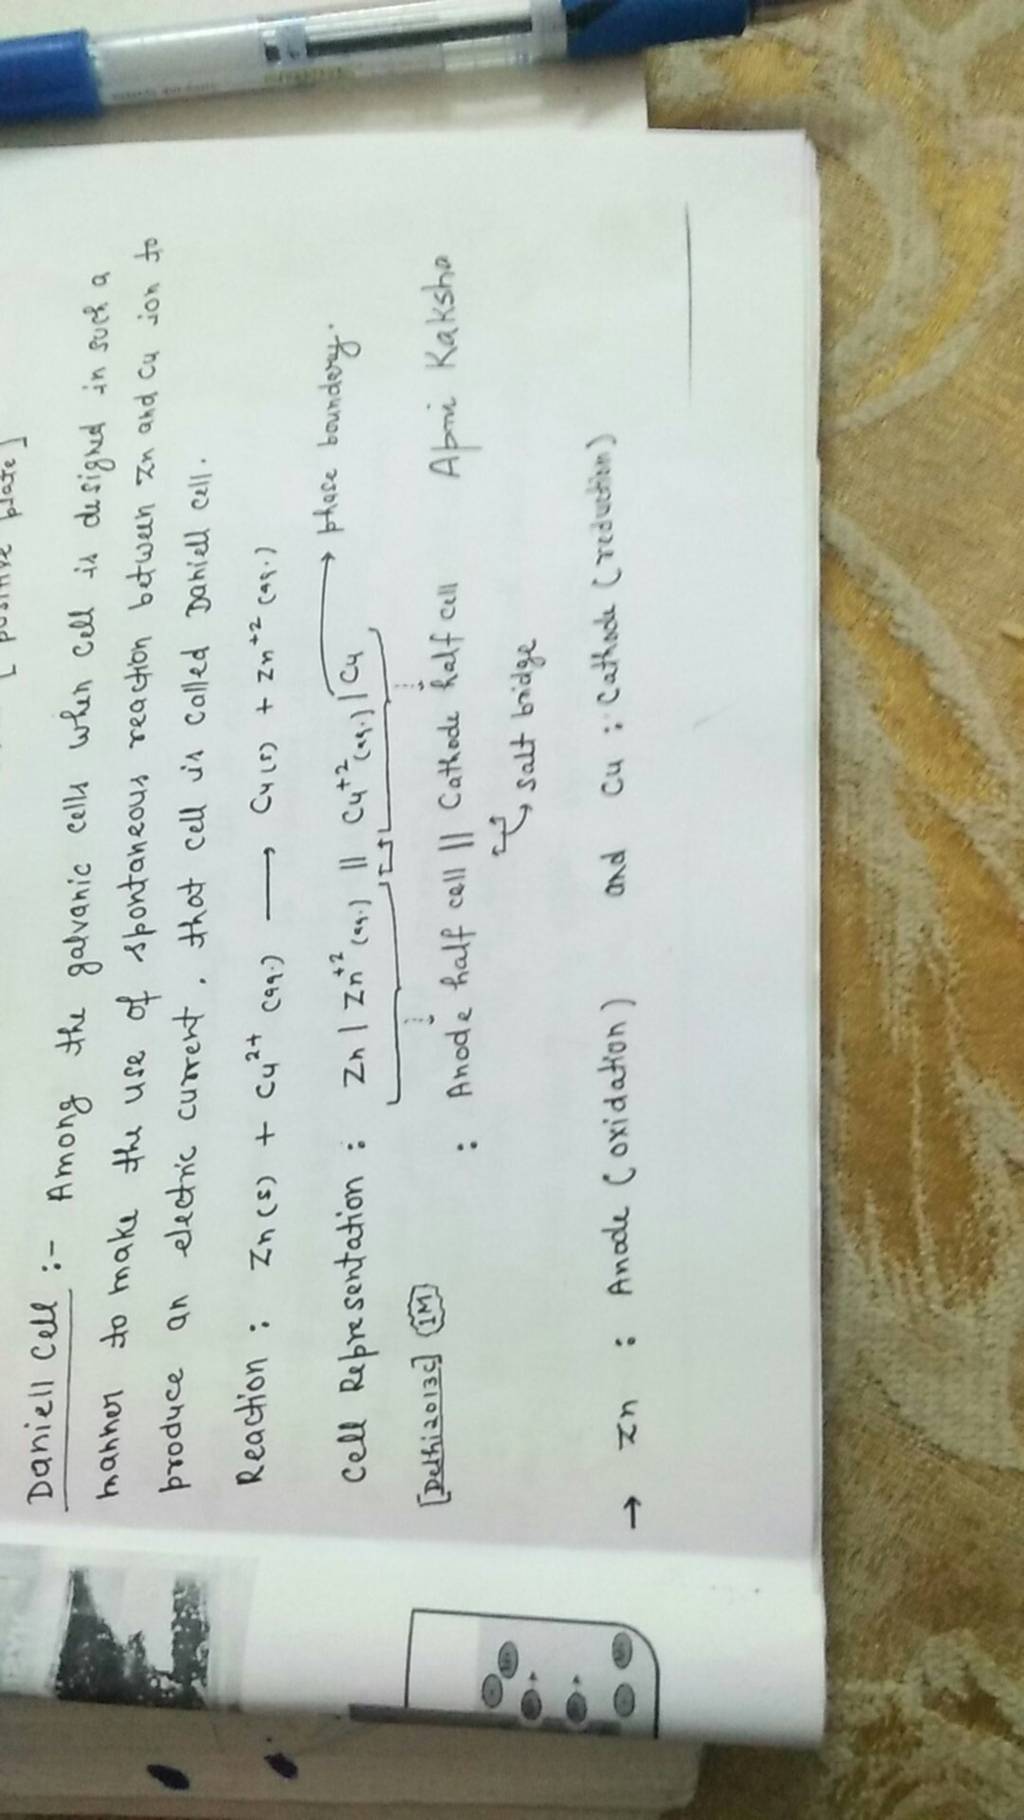 [ positive plate ]
Daniell Cell :- Among the galvanic cells when cell is designed in such a
manner to make the use of spontaneous reaction between Zn and Cu ion to
produce an electric current, that cell is called Daniell cell.
Reaction : Zn(s) + Cu²⁺ (aq.) ⟶ Cu(s) + Zn⁺² (aq.)
Cell Representation : Zn | Zn⁺² (aq.) || Cu⁺² (aq.) | Cu → phase boundery.
[Delhi 2013C] (1M)
: Anode half cell || Cathode half cell Apni Kaksha
salt bridge
→ Zn : Anode (oxidation) and Cu : Cathode (reduction)